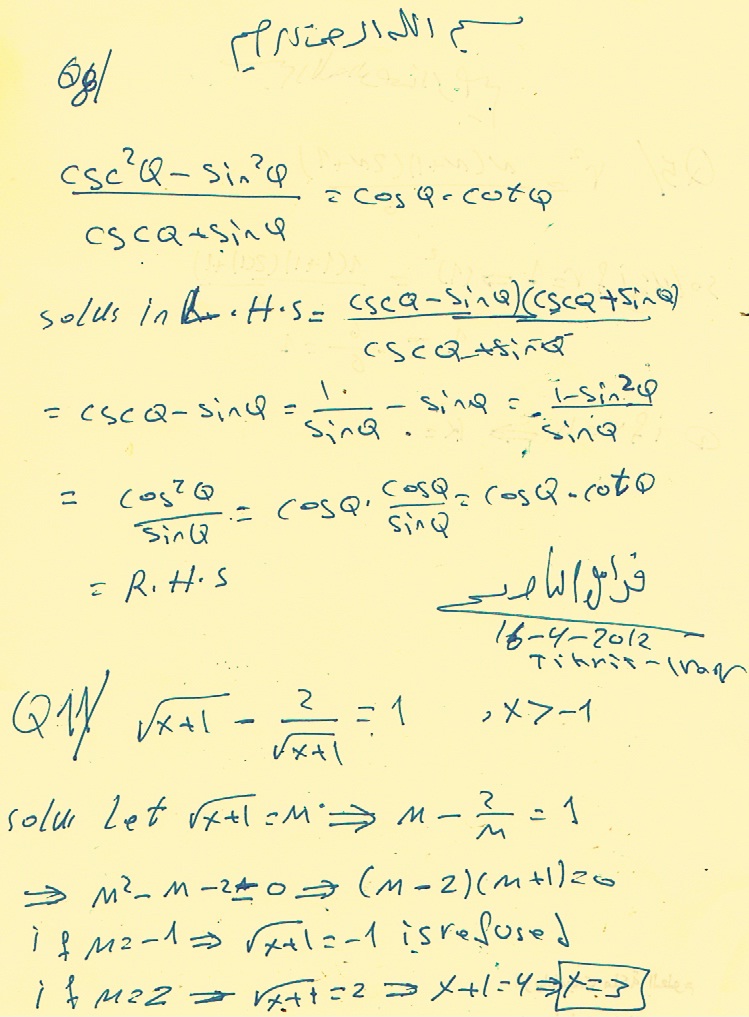 بسم الله الرحمن الرحيم
Q8/
csc²Q − sin²Q / cscQ + sinQ = cosQ · cotQ
solus in L.H.S = (cscQ − sinQ)(cscQ + sinQ) / cscQ + sinQ
= cscQ − sinQ = 1/sinQ − sinQ = 1−sin²Q / sinQ
= cos²Q / sinQ = cosQ · cosQ/sinQ = cosQ · cotQ
= R.H.S
فراس
16-4-2012
Tikrit-Iraq
Q11/ √x+1 − 2/√x+1 = 1 , x > −1
solus Let √x+1 = M ⇒ M − 2/M = 1
⇒ M² − M − 2 = 0 ⇒ (M−2)(M+1) = 0
if M = −1 ⇒ √x+1 = −1 is refused
if M = 2 ⇒ √x+1 = 2 ⇒ x+1 = 4 ⇒ x = 3